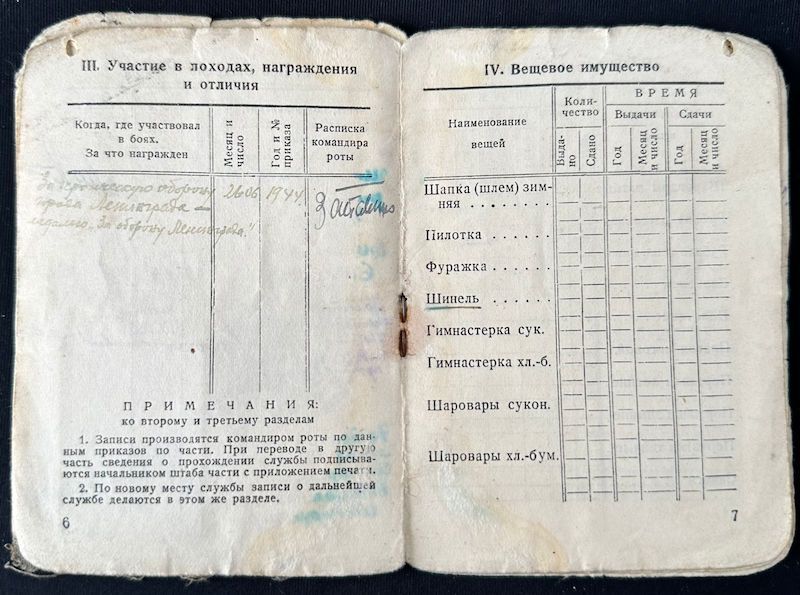 III. Участие в походах, награждения
и отличия
Когда, где участвовал
в боях.
За что награжден
Месяц и
число
Год и №
приказа
Расписка
командира
роты
За героическую оборону 26.06 1944
города Ленинграда —
медалью „За оборону Ленинграда."
ПРИМЕЧАНИЯ:
ко второму и третьему разделам
1. Записи производятся командиром роты по дан-
ным приказов по части. При переводе в другую
часть сведения о прохождении службы подписыва-
ются начальником штаба части с приложением печати.
2. По новому месту службы записи о дальнейшей
службе делаются в этом же разделе.
6
IV. Вещевое имущество
Наименование
вещей
Коли-
чество
ВРЕМЯ
Выдачи
Сдачи
Выда-
но
Сдано
Год
Месяц
и число
Год
Месяц
и число
Шапка (шлем) зим-
няя . . . . . . . .
Пилотка . . . . . .
Фуражка . . . . . .
Шинель . . . . . .
Гимнастерка сук.
Гимнастерка хл.-б.
Шаровары сукон.
Шаровары хл.-бум.
7